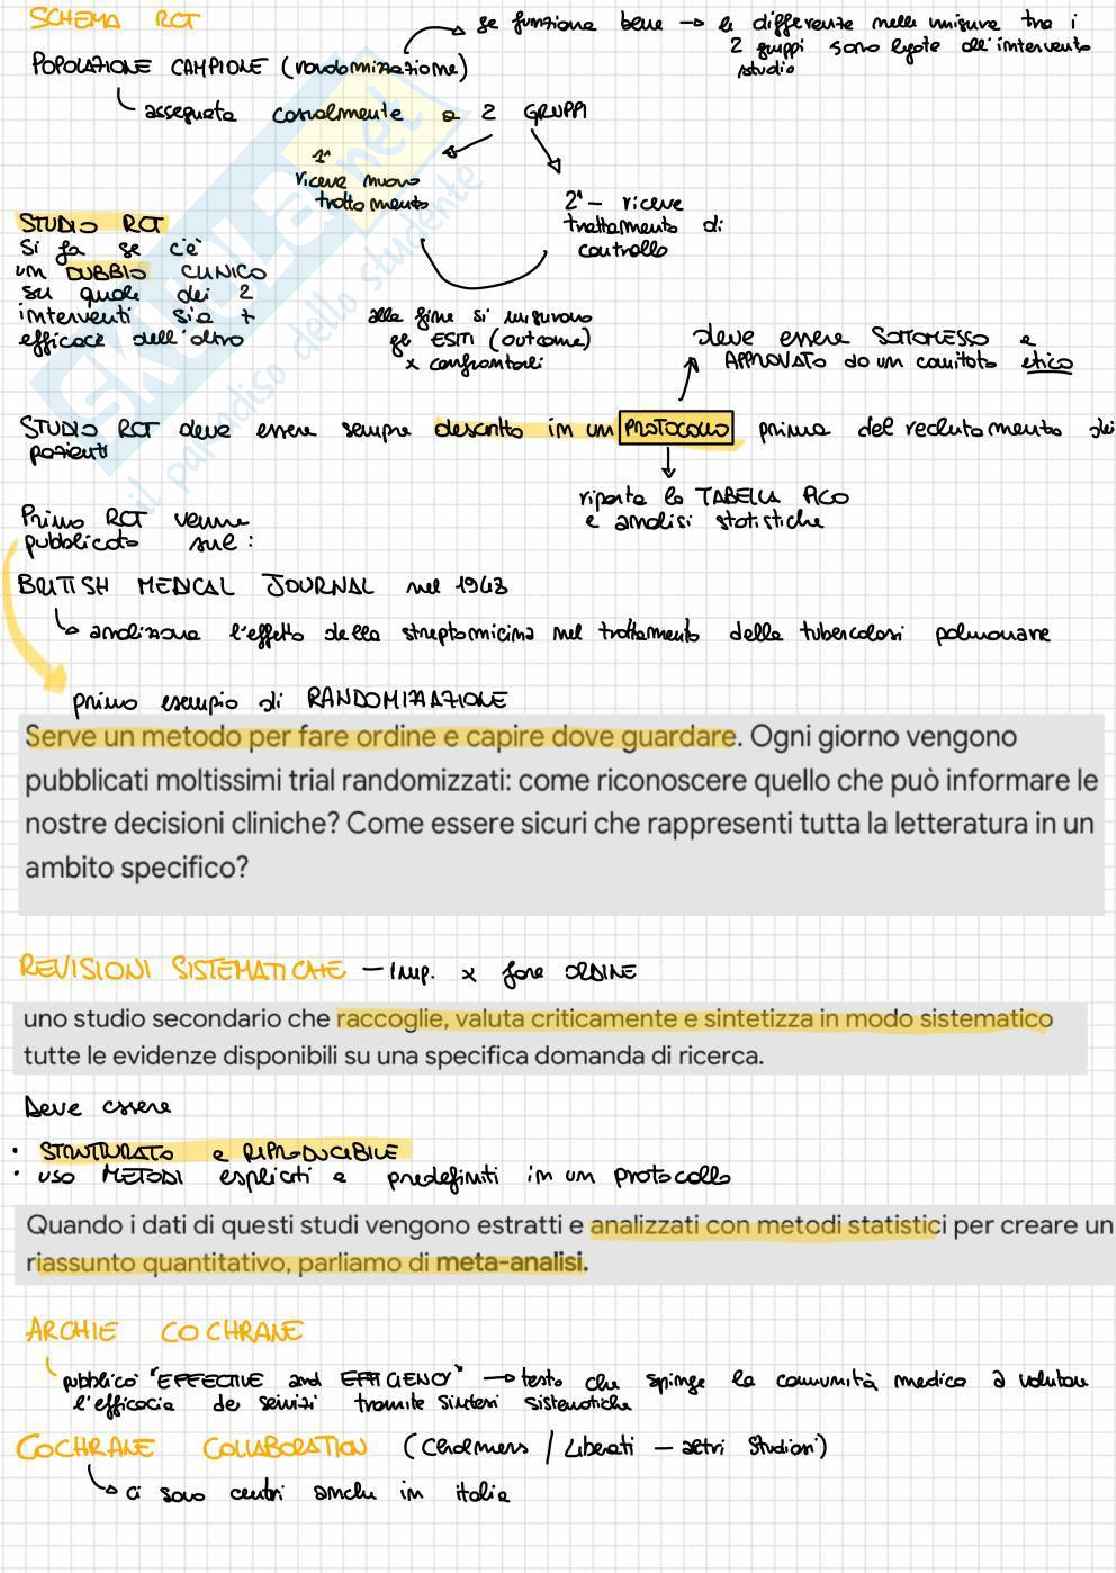 SCHEMA RCT
se funziona bene → le differenze nelle misure tra i
2 gruppi sono legate all'intervento
studio
POPOLAZIONE CAMPIONE (randomizzazione)
assegnata casualmente a 2 GRUPPI
1°
riceve nuovo
trattamento
2° - riceve
trattamento di
controllo
STUDIO RCT
Si fa se c'è
un DUBBIO CLINICO
su quale dei 2
interventi sia +
efficace dell'altro
alla fine si misurano
gli ESITI (outcome)
x confrontarli
deve essere SOTTOMESSO e
APPROVATO da un comitato etico
STUDIO RCT deve essere sempre descritto in un PROTOCOLLO prima del reclutamento dei
pazienti
riporta la TABELLA PICO
e analisi statistiche
Primo RCT venne
pubblicato sul:
BRITISH MEDICAL JOURNAL nel 1948
analizzava l'effetto della streptomicina nel trattamento della tubercolosi polmonare
primo esempio di RANDOMIZZAZIONE
Serve un metodo per fare ordine e capire dove guardare. Ogni giorno vengono
pubblicati moltissimi trial randomizzati: come riconoscere quello che può informare le
nostre decisioni cliniche? Come essere sicuri che rappresenti tutta la letteratura in un
ambito specifico?
REVISIONI SISTEMATICHE - imp. x fare ORDINE
uno studio secondario che raccoglie, valuta criticamente e sintetizza in modo sistematico
tutte le evidenze disponibili su una specifica domanda di ricerca.
Deve essere
· STRUTTURATO e RIPRODUCIBILE
· uso METODI espliciti e predefiniti in un protocollo
Quando i dati di questi studi vengono estratti e analizzati con metodi statistici per creare un
riassunto quantitativo, parliamo di meta-analisi.
ARCHIE COCHRANE
pubblicò "EFFECTIVE and EFFICIENCY" → testo che spinge la comunità medica a valutare
l'efficacia dei servizi tramite sintesi sistematiche
COCHRANE COLLABORATION (Chalmers / Liberati - altri studiosi)
ci sono centri anche in italia
SKUOLA.net
il paradiso dello studente